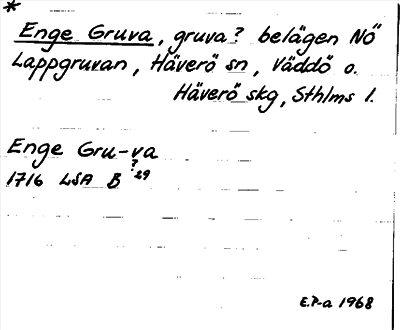 *
Enge Gruva, gruva? belägen NÖ
Lappgruvan, Häverö sn, Väddö o.
Häverö skg, Sthlms l.
Enge Gru-va
1716 LSA B ? 29
E.P-a 1968